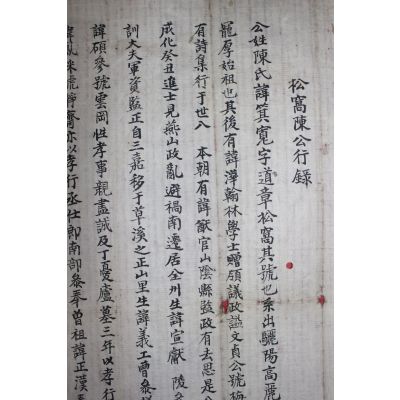 松窩陳公行錄
公姓陳氏諱箕寬字道章松窩其號也系出驪陽高麗
厚始祖也其後有諱澕翰林學士贈領議政諡文貞公號梅
有詩集行于世入 本朝有諱猷官山陰縣監政有去思是公
成化癸丑進士見燕山政亂避禍南遷居全州生諱宣獻 陵參
訓大夫軍資監正自三嘉移于草溪之正山里生諱義工曹參
諱碩參號雲岡性孝事親盡誠及丁憂廬墓三年以孝行
齋亦以孝行丞仕郎南部參奉曾祖諱正漢